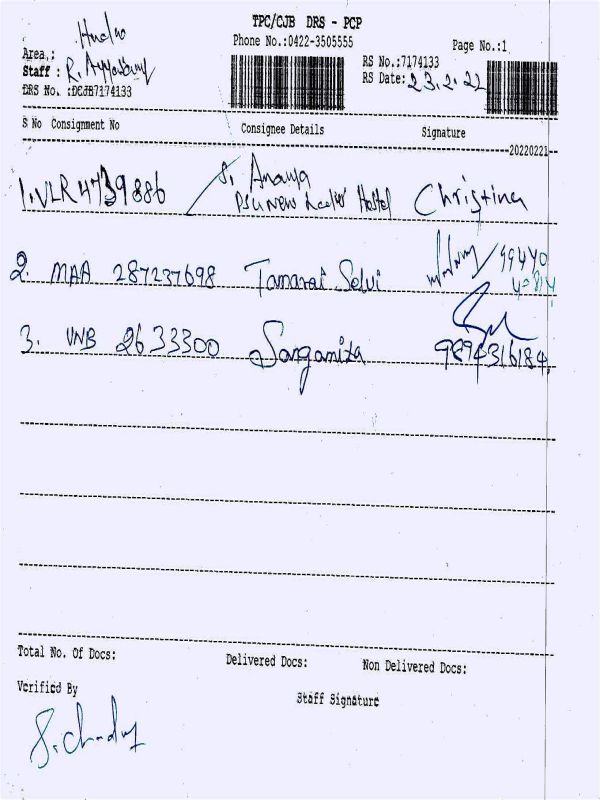 TPC/CJB DRS - PCP
Phone No.:0422-3505555
Page No.:1
Area.:
Staff : R.
DRS No. :DCJB7174133
RS No.:7174133
RS Date: 23.2.22
S No Consignment No Consignee Details Signature
20220221
1. VLR4739886 S. Ananya Christina
PSG New Ladies Hostel
2. MAA 287237698 Tamarai Selvi 99440
3. VNB 2633300 Sangamitra 9894316184
Total No. Of Docs: Delivered Docs: Non Delivered Docs:
Verified By Staff Signature